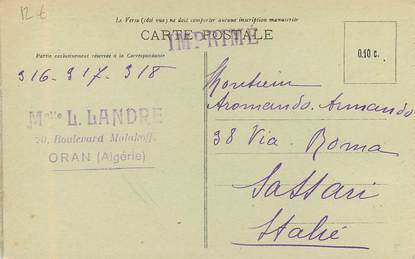 12 €
Le Verso (côté vu) ne doit comporter aucune inscription manuscrite
CARTE POSTALE
IMPRIMÉ
Partie exclusivement réservée à la Correspondance
0.10 c.
316-317-318
Mlle L. LANDRE
70, Boulevard Malakoff,
ORAN (Algérie)
Monsieur
Aromando. Armando
38 Via. Roma
Sassari
Italie